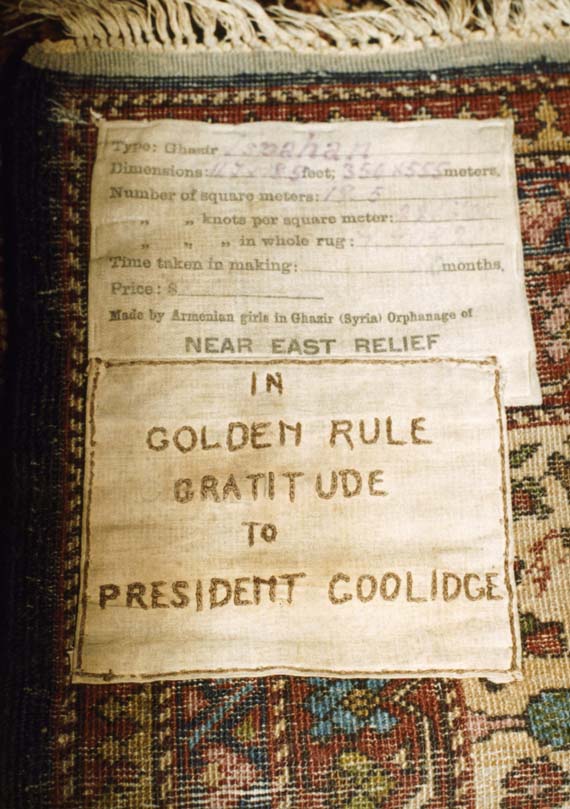 Type: Ghazir Ispahan
Dimensions: feet; meters.
Number of square meters: 18.5
„ „ knots per square meter:
„ „ „ in whole rug:
Time taken in making: months.
Price: $
Made by Armenian girls in Ghazir (Syria) Orphanage of
NEAR EAST RELIEF
IN
GOLDEN RULE
GRATITUDE
TO
PRESIDENT COOLIDGE